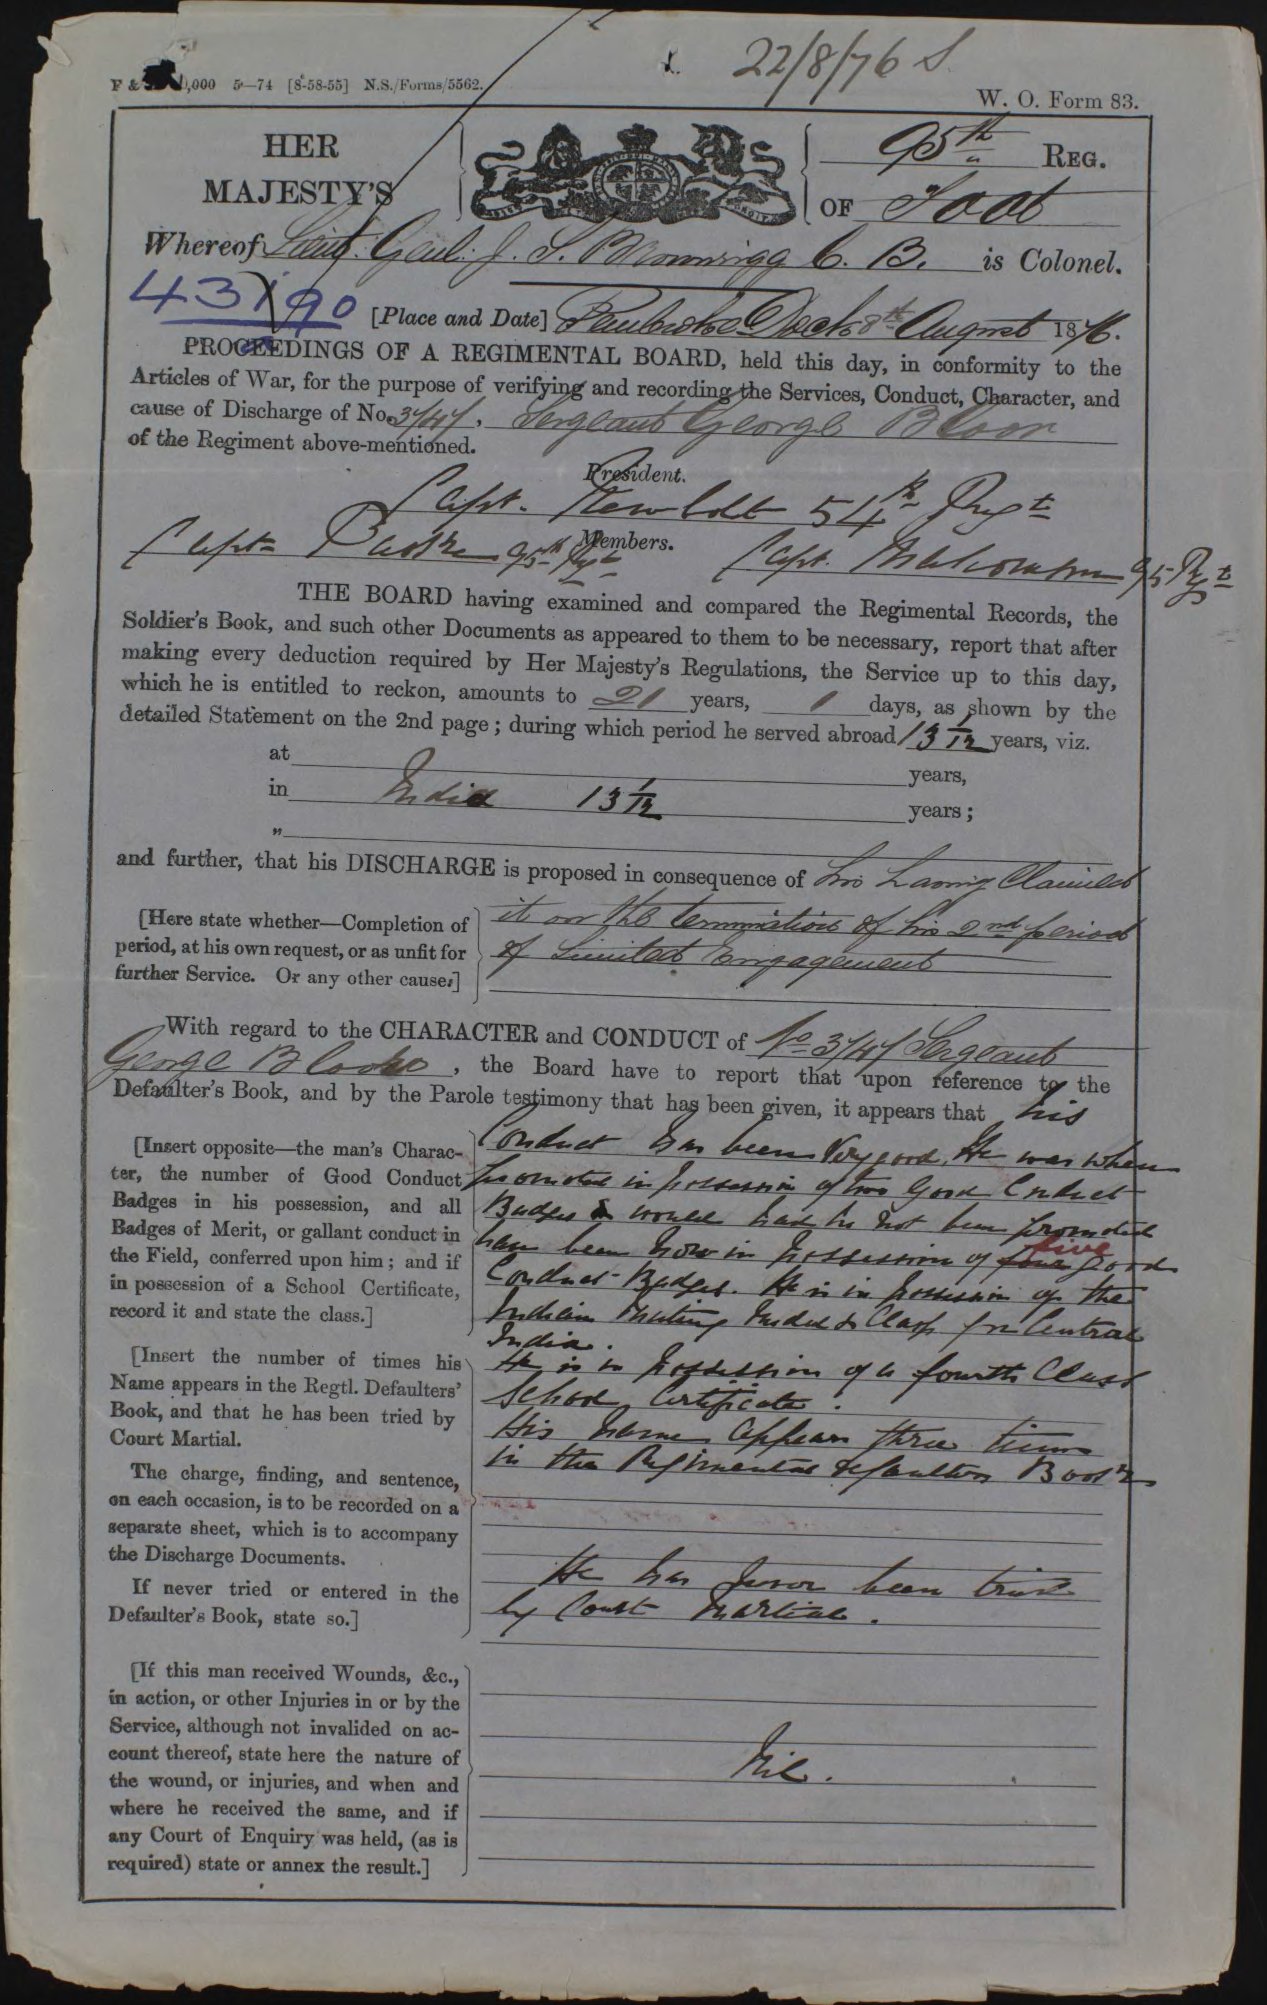 22/8/76 S
,000 5—74 [8-58-55] N.S./Forms/5562.
W. O. Form 83.
HER
MAJESTY'S
95th REG.
OF Foot
Whereof Lieut. Genl. J. S. Brownrigg C. B. is Colonel.
43190
[Place and Date] Pembroke Dock 8th August 1876.
PROCEEDINGS OF A REGIMENTAL BOARD, held this day, in conformity to the
Articles of War, for the purpose of verifying and recording the Services, Conduct, Character, and
cause of Discharge of No. 3747. Sergeant George Bloor
of the Regiment above-mentioned.
President.
Capt. Newbolt 54th Regt
Members.
Capt 95th Regt Capt. Malcolmson 95 Regt
THE BOARD having examined and compared the Regimental Records, the
Soldier's Book, and such other Documents as appeared to them to be necessary, report that after
making every deduction required by Her Majesty's Regulations, the Service up to this day,
which he is entitled to reckon, amounts to 21 years, 1 days, as shown by the
detailed Statement on the 2nd page; during which period he served abroad 13 1/12 years, viz.
at years,
in India 13 1/12 years;
„
and further, that his DISCHARGE is proposed in consequence of his having Claimed
[Here state whether—Completion of
period, at his own request, or as unfit for
further Service. Or any other cause.]
it on the termination of his 2nd period
of Limited Engagement
With regard to the CHARACTER and CONDUCT of No 3747 Sergeant
George Bloor, the Board have to report that upon reference to the
Defaulter's Book, and by the Parole testimony that has been given, it appears that his
[Insert opposite—the man's Charac-
ter, the number of Good Conduct
Badges in his possession, and all
Badges of Merit, or gallant conduct in
the Field, conferred upon him; and if
in possession of a School Certificate,
record it and state the class.]
Conduct has been Very good, He was when
promoted in possession of two Good Conduct
Badges & would had he not been promoted
have been now in possession of four five good
Conduct Badges. He is in possession of the
Indian Mutiny Medal & Clasp for Central
India.
He is in possession of a fourth Class
School Certificate.
[Insert the number of times his
Name appears in the Regtl. Defaulters'
Book, and that he has been tried by
Court Martial.
The charge, finding, and sentence,
on each occasion, is to be recorded on a
separate sheet, which is to accompany
the Discharge Documents.
If never tried or entered in the
Defaulter's Book, state so.]
His name appears three times
in the Regimental Defaulters Book
He has never been tried
by Court Martial.
[If this man received Wounds, &c.,
in action, or other Injuries in or by the
Service, although not invalided on ac-
count thereof, state here the nature of
the wound, or injuries, and when and
where he received the same, and if
any Court of Enquiry was held, (as is
required) state or annex the result.]
Nil.